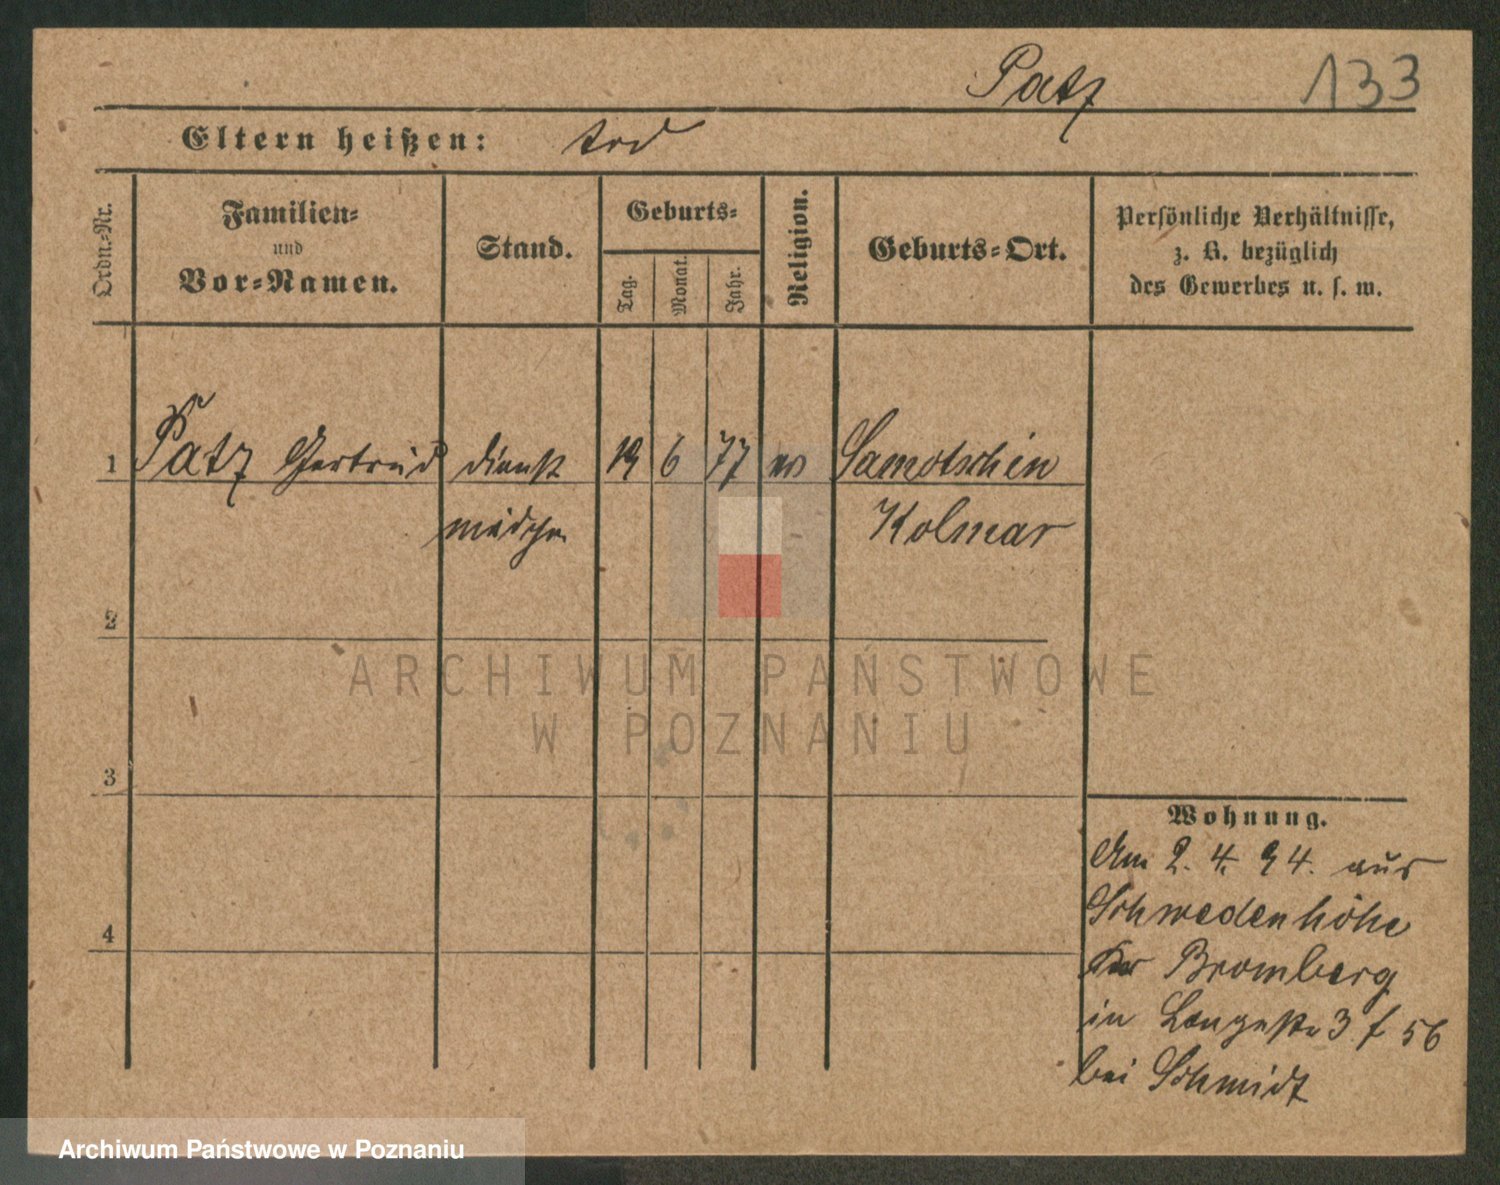 Patz 133
Eltern heißen: tod
Ordn.-Nr.
Familien-
und
Vor-Namen.
Stand.
Geburts-
Tag.
Monat.
Jahr.
Religion.
Geburts-Ort.
Persönliche Verhältnisse,
z. B. bezüglich
des Gewerbes u. s. w.
1 Patz Gertrud dienst 19 6 77 ev Samotschin
mädchen Kolmar
2
ARCHIWUM PAŃSTWOWE
W POZNANIU
3
Wohnung.
Am 2. 4. 94. aus
Schwedenhöhe
4
Kr Bromberg
in Langestr 3 f 56
bei Schmidt
Archiwum Państwowe w Poznaniu